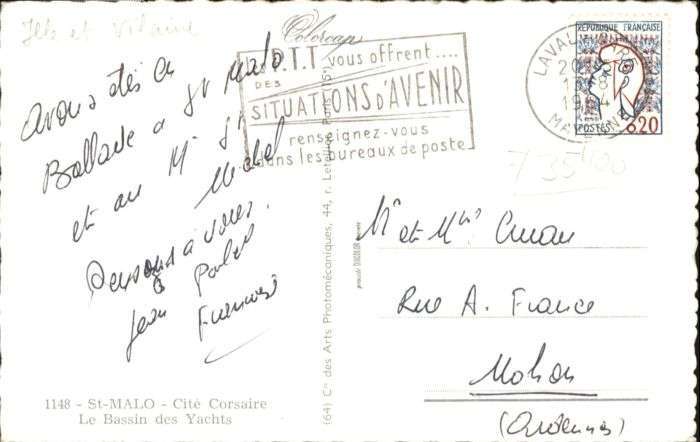 Ille et Vilaine
Colorcap
P.T.T vous offrent....
DES
SITUATIONS D'AVENIR
renseignez-vous
dans les bureaux de poste
REPUBLIQUE FRANÇAISE
POSTES 0,20
LAVAL
Ballade a St Malo
et au Mt St
Michel
Pensons à vous.
Jean
Mr et Mme
Rue A. France
Mohon
(Ardennes)
(64) Cie des Arts Photomécaniques, 44, r. Letellier, Paris (15e)
1148 - St-MALO - Cité Corsaire
Le Bassin des Yachts